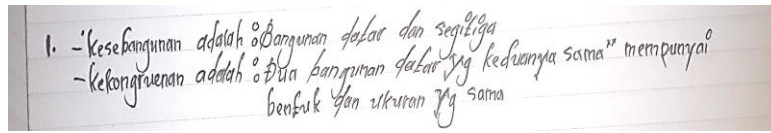 1. - Kesebangunan adalah : Bangunan datar dan segitiga
- Kekongruenan adalah : Dua bangunan datar yg keduanya sama" mempunyai
bentuk dan ukuran yg sama